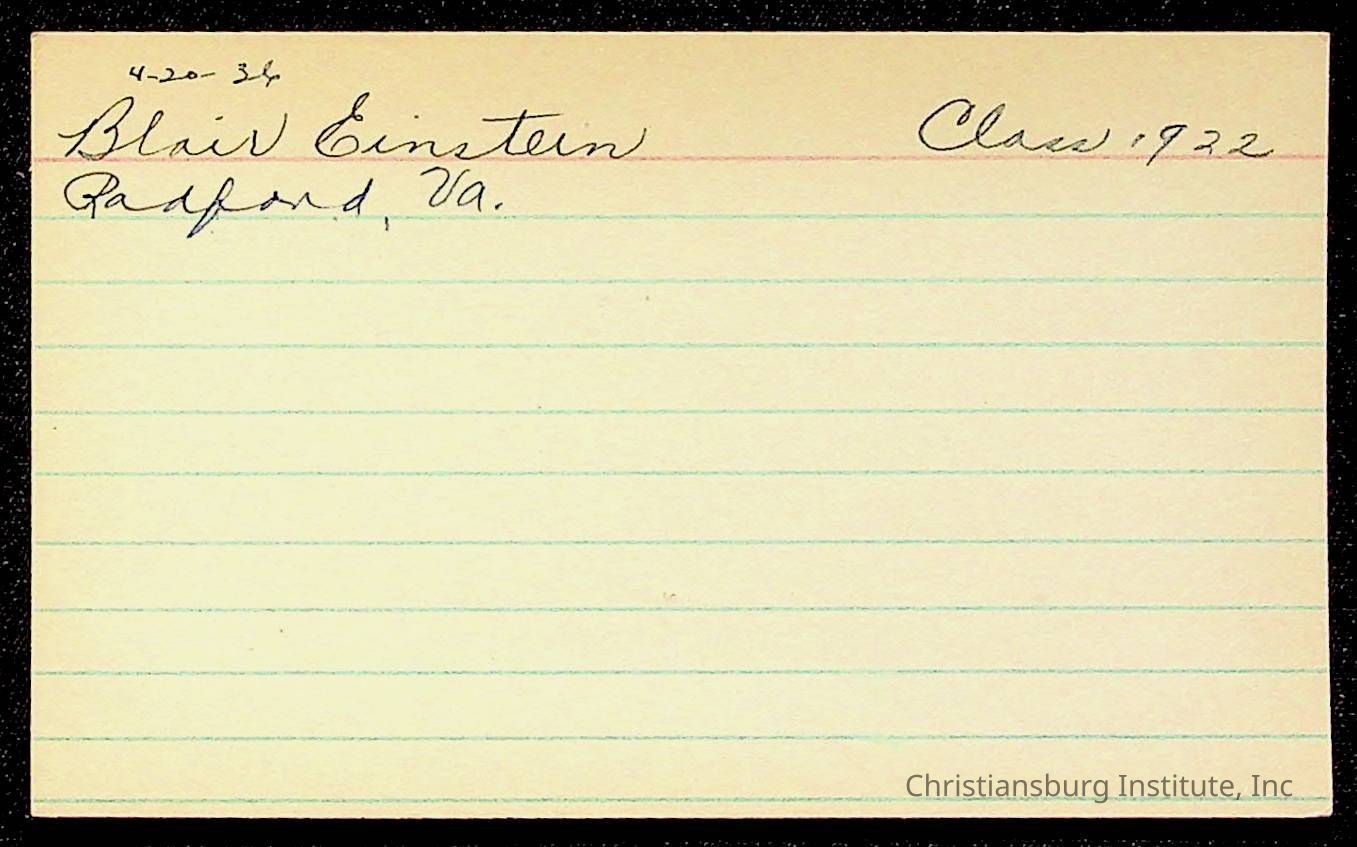 4-20-36
Blair Einstein Class 1922
Radford, Va.
Christiansburg Institute, Inc